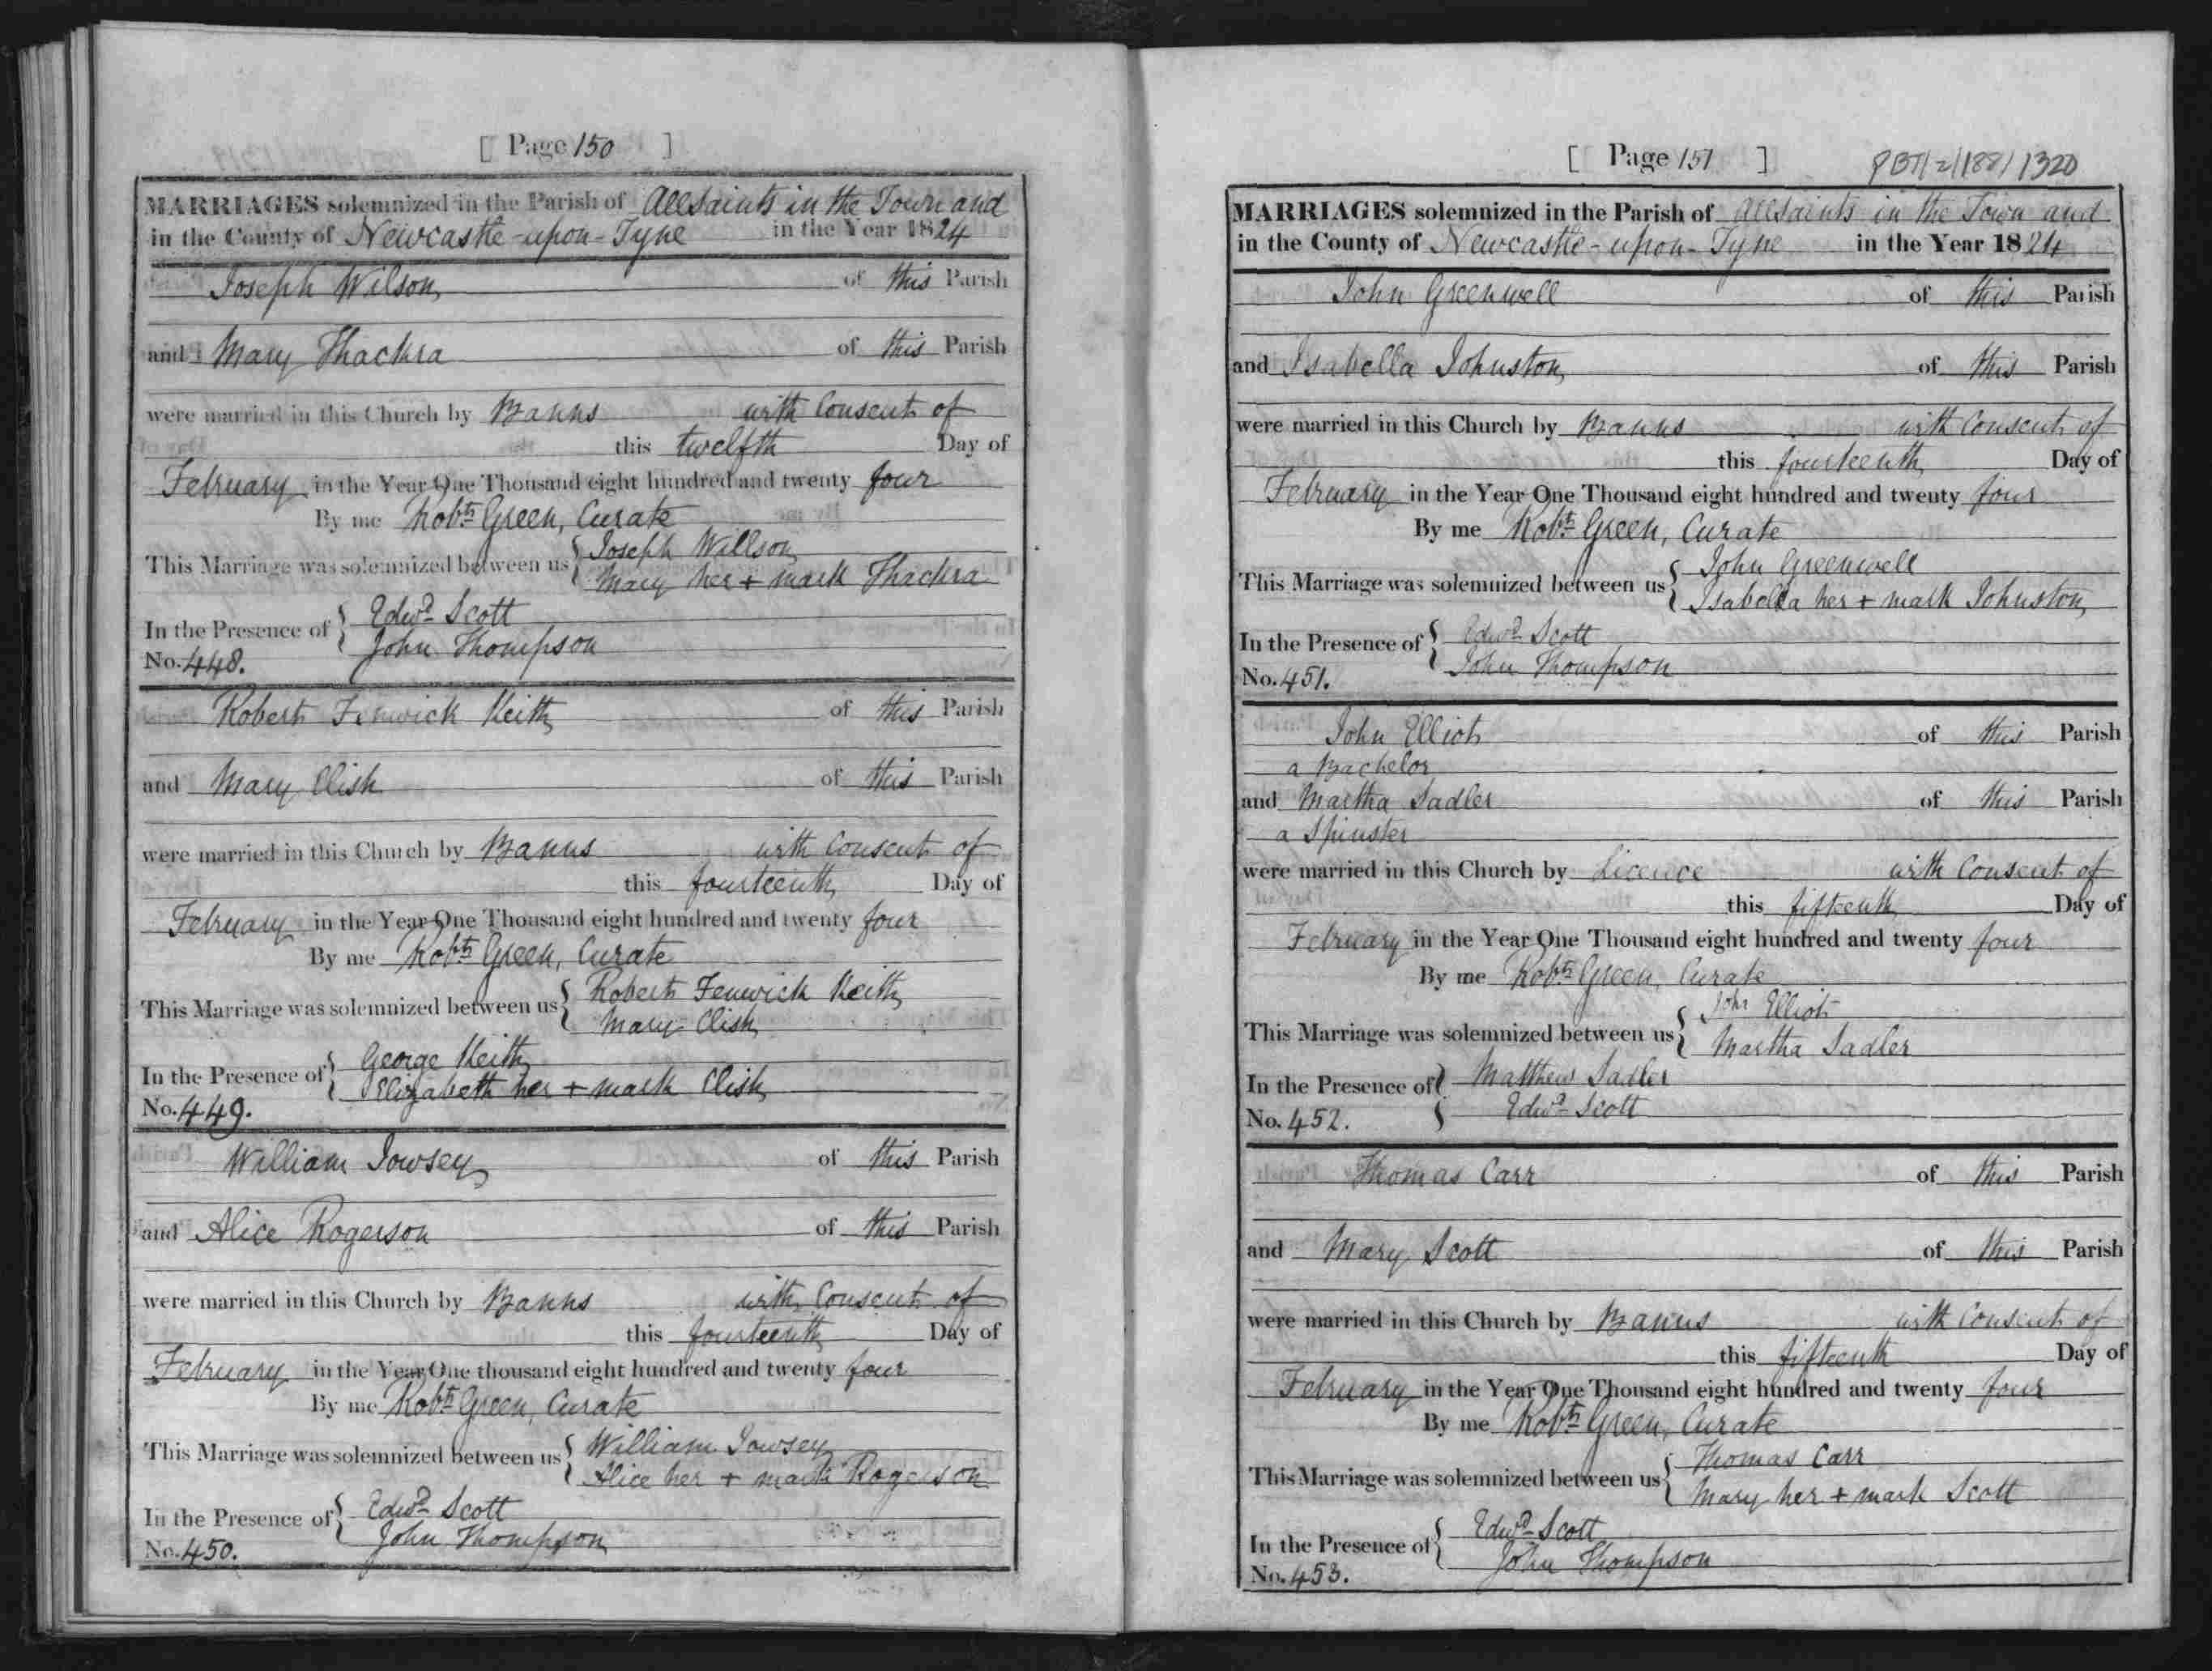 [ Page 150 ]
MARRIAGES solemnized in the Parish of Allsaints in the Town and
in the County of Newcastle-upon-Tyne in the Year 1824
Joseph Wilson of this Parish
and Mary Thackra of this Parish
were married in this Church by Banns with Consent of
this twelfth Day of
February in the Year One Thousand eight hundred and twenty four
By me Robt. Green, Curate
This Marriage was solemnized between us { Joseph Willson
Mary her + mark Thackra
In the Presence of { Edwd. Scott
John Thompson
No. 448.
Robert Fenwick Keith of this Parish
and Mary Clish of this Parish
were married in this Church by Banns with Consent of
this fourteenth Day of
February in the Year One Thousand eight hundred and twenty four
By me Robt. Green, Curate
This Marriage was solemnized between us { Robert Fenwick Keith
Mary Clish
In the Presence of { George Keith
Elizabeth her + mark Clish
No. 449.
William Jowsey of this Parish
and Alice Rogerson of this Parish
were married in this Church by Banns with Consent of
this fourteenth Day of
February in the Year One thousand eight hundred and twenty four
By me Robt. Green, Curate
This Marriage was solemnized between us { William Jowsey
Alice her + mark Rogerson
In the Presence of { Edwd. Scott
John Thompson
No. 450.
[ Page 151 ] PBT/2/188/1320
MARRIAGES solemnized in the Parish of Allsaints in the Town and
in the County of Newcastle-upon-Tyne in the Year 1824
John Greenwell of this Parish
and Isabella Johnston of this Parish
were married in this Church by Banns with Consent of
this fourteenth Day of
February in the Year One Thousand eight hundred and twenty four
By me Robt. Green, Curate
This Marriage was solemnized between us { John Greenwell
Isabella her + mark Johnston
In the Presence of { Edwd. Scott
John Thompson
No. 451.
John Elliot of this Parish
a Bachelor
and Martha Sadler of this Parish
a Spinster
were married in this Church by Licence with Consent of
this fifteenth Day of
February in the Year One Thousand eight hundred and twenty four
By me Robt. Green, Curate
This Marriage was solemnized between us { John Elliot
Martha Sadler
In the Presence of { Matthew Sadler
Edwd. Scott
No. 452.
Thomas Carr of this Parish
and Mary Scott of this Parish
were married in this Church by Banns with Consent of
this fifteenth Day of
February in the Year One Thousand eight hundred and twenty four
By me Robt. Green, Curate
This Marriage was solemnized between us { Thomas Carr
Mary her + mark Scott
In the Presence of { Edwd. Scott
John Thompson
No. 453.